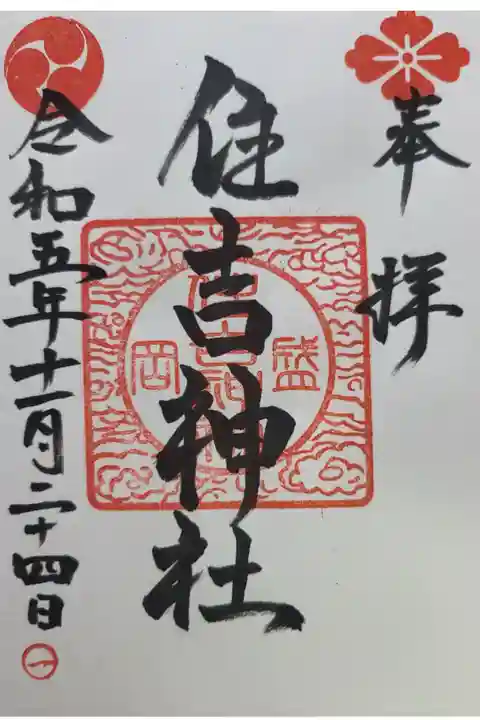 奉拝
住吉神社
盛岡
住吉神社
令和五年十一月二十四日